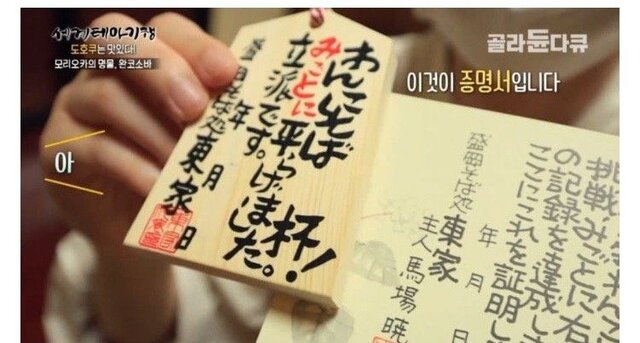 세계테마기행
도호쿠는 맛있다!
모리오카의 명물, 완코소바
골라듄다큐
이것이 증명서입니다
아
わんこそば 杯!
みごとに平らげました。
立派です。
年 月 日
盛岡そば処 東家
挑戦みごとに右
の記録を達成し
ここにこれを証明し
年 月 日
盛岡そば処 東家
主人 馬場 暁